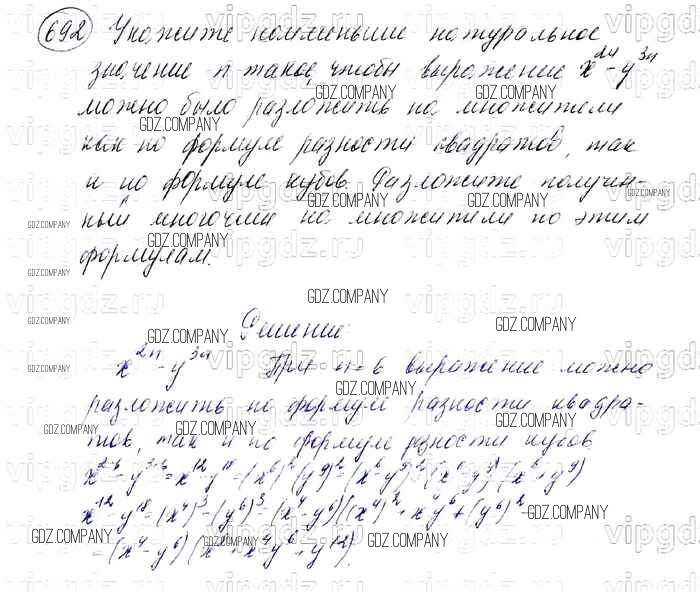 692 Укажите наименьшие натуральное
значение n такое, чтобы выражение x²ⁿ-y³ⁿ
можно было разложить на множители
как по формуле разности квадратов, так
и по формуле кубов. Разложите получен-
ный многочлен на множители по этим
формулам.
Решение:
x²ⁿ-y³ⁿ При n=6 выражение можно
разложить по формуле разности квадра-
тов, так и по формуле рзности кубов
x²·⁶-y³·⁶=x¹²-y¹⁸=(x⁶)²-(y⁹)²=(x⁶-y⁹)(x⁶+y⁹)
x¹²-y¹⁸=(x⁴)³-(y⁶)³=(x⁴-y⁶)((x⁴)²+x⁴y⁶+(y⁶)²=
=(x⁴-y⁶)(x⁸+x⁴y⁶+y¹²).
GDZ.COMPANY
vipgdz.ru